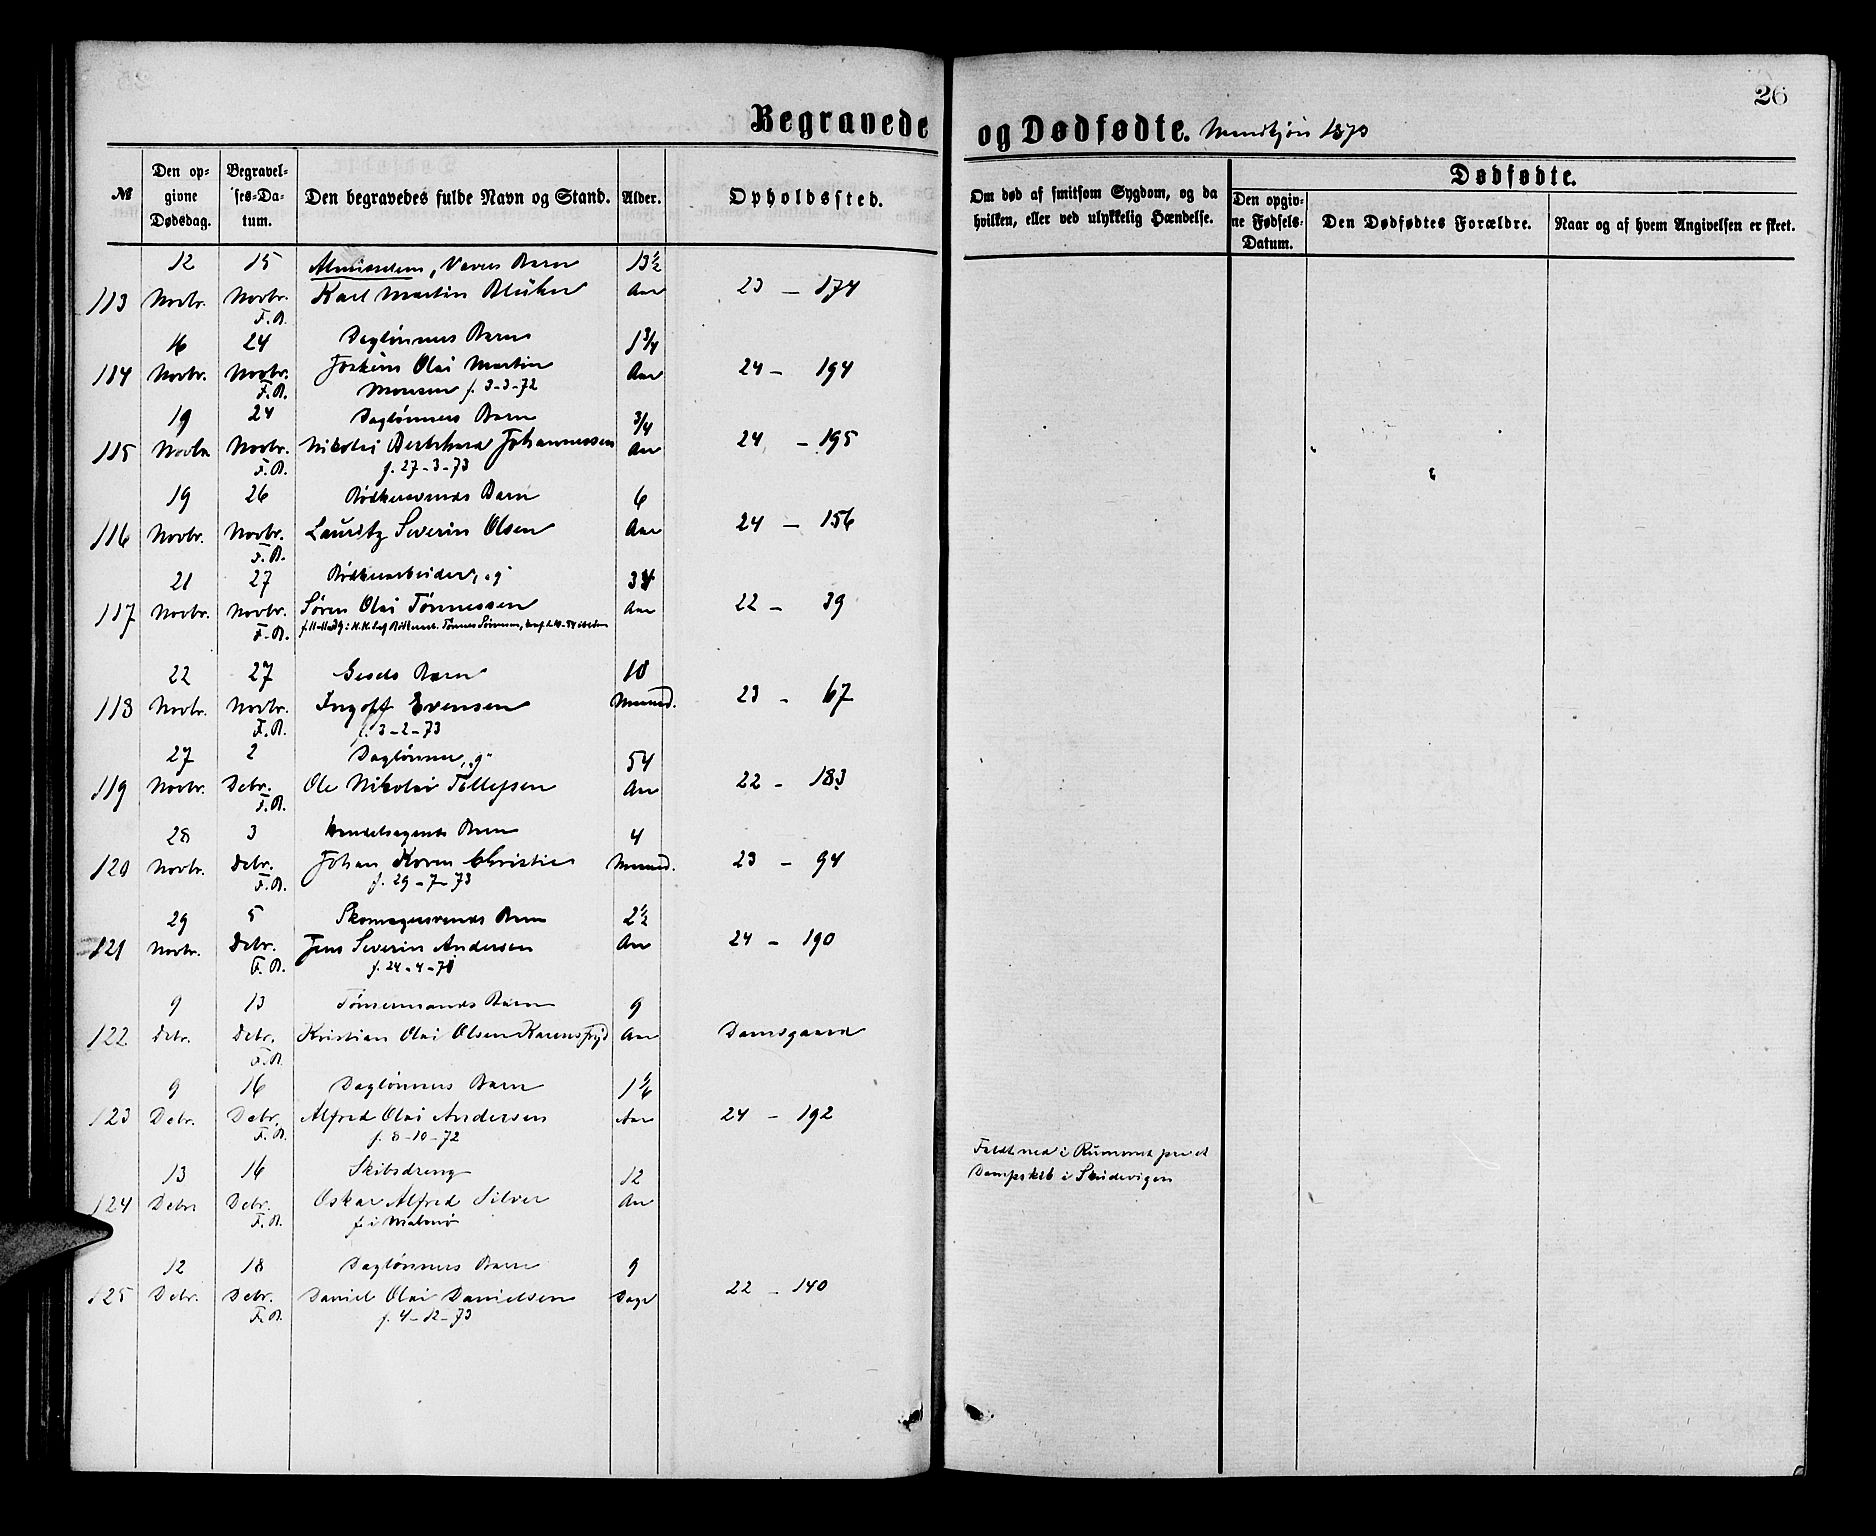 26
Begravede og Dødfødte. Mandkjøn 1873
№
Den opgivne Dødsdag.
Begravelses-Datum.
Den begravedes fulde Navn og Stand.
Alder.
Opholdssted.
Om død af smitsom Sygdom, og da hvilken, eller ved ulykkelig Hændelse.
Dødfødte.
Den opgivne Fødsels-Datum.
Den Dødfødtes Forældre.
Naar og af hvem Angivelsen er skeet.
12 15 Barn 13½
113 Novbr. Novbr. Karl Martin Aar 23 – 174
F.B.
16 24 Daglønners Barn 1¾
114 Novbr. Novbr. Joakim Olai Martin Aar 24 – 194
F.B. Monsen f. 3-3-72
19 24 Daglønners Barn ¾
115 Novbr. Novbr. Nikolai Johannessen Aar 24 – 195
F.B. f. 27-3-73
19 26 Bødkersvends Barn 6
116 Novbr. Novbr. Lauritz Severin Olsen Aar 24 – 156
F.B.
21 27 Bødkerarbeider, „g"
117 Novbr. Novbr. Søren Olai Tønnessen Aar 22 – 39
F.B.
22 27 Barn 10
118 Novbr. Novbr. Ingolf Evensen Maaned. 23 – 67
F.B. f. 3-2-73
27 2 Daglønner, „g" 54
119 Novbr. Debr. Ole Nikolai Tollefsen Aar 22 – 183
F.B.
28 3 Handelsagents Barn 4
120 Novbr. Debr. Johan Koren Christie Maaned. 23 – 94
F.B. f. 29-7-73
29 5 Skomagersvends Barn 2½
121 Novbr. Debr. Jens Severin Andersen Aar 24 – 190
F.B. f. 24-4-71
9 13 Tømmermands Barn 9
122 Debr. Debr. Kristian Olai Olsen Aar Damsgaard
F.B.
9 16 Daglønners Barn 1⅙
123 Debr. Debr. Alfred Olai Andersen Aar 24 – 192
F.B. f. 8-10-72
13 16 Skibsdreng 12 Faldt ned i Rummet paa et
124 Debr. Debr. Oskar Alfred Silver Aar Dampskib i Skudevigen
F.B. f. i Malmø
12 18 Daglønners Barn 9
125 Debr. Debr. Daniel Olai Danielsen Dage 22 – 140
F.B. f. 4-12-73